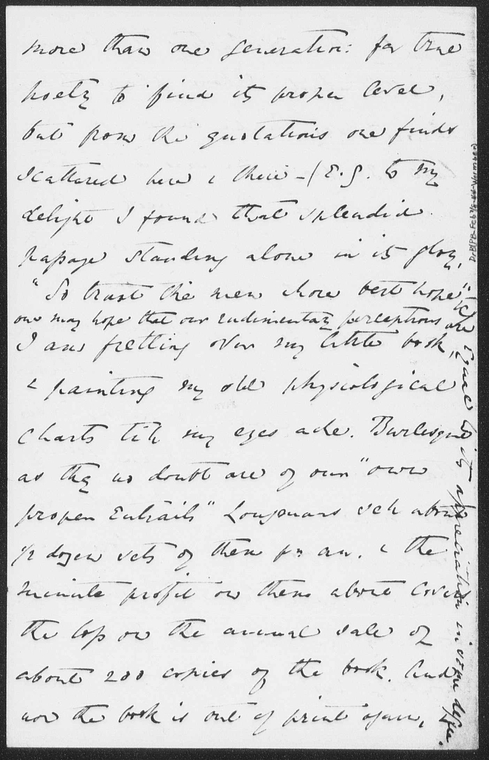 more than one generation: for true
poetry to find its proper level,
but from the quotations one finds
scattered here & there - (E.g. to my
delight I found that splendid
passage standing alone in its glory,
"So trust the men whose best hope
one may hope that our rudimentary perceptions are
I am fretting over my little book,
& painting my old physiological
charts till my eyes ache. Burlesques
as they no doubt are of our "own
proper Entrails" Longmans sell about
1/2 dozen sets of them pr an. & the
minute profit on them about covers
the loss on the annual sale of
about 200 copies of the book. And
now the book is out of print again,
equal to its appreciation in some degree.